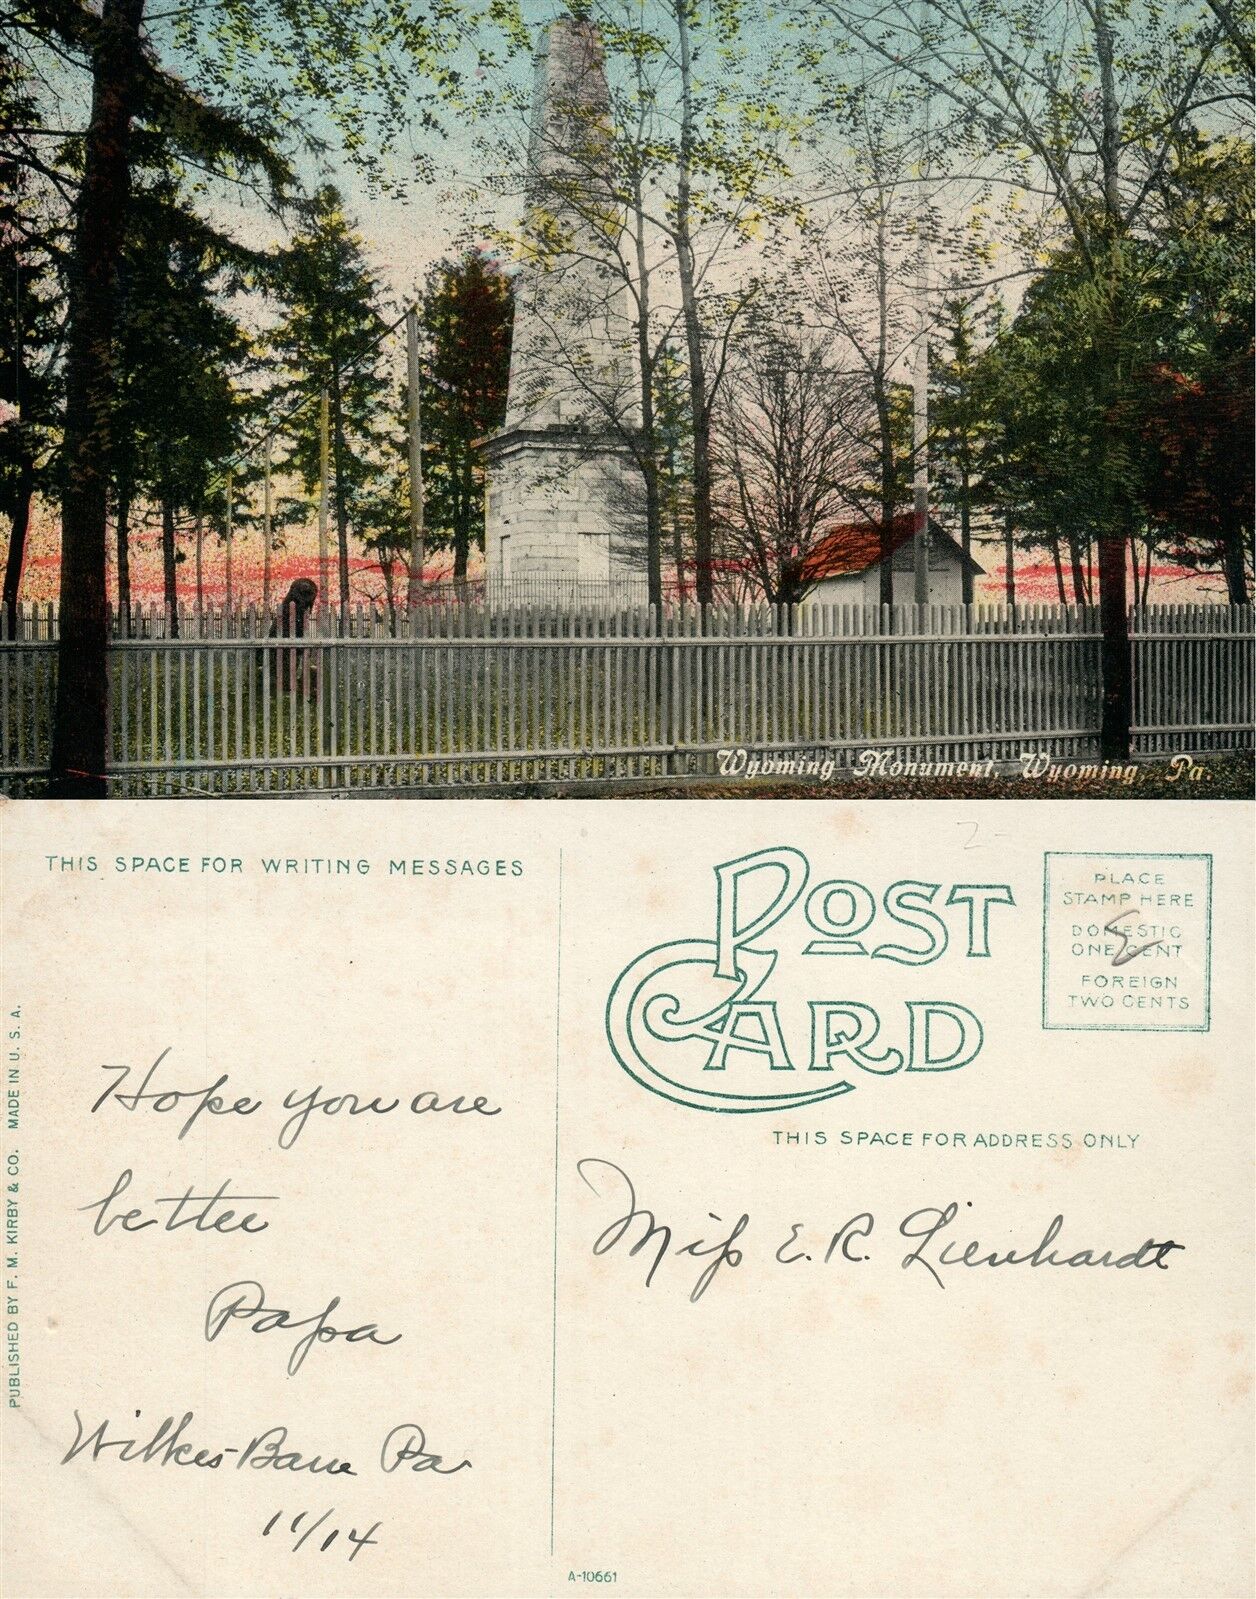 Wyoming Monument, Wyoming, Pa.
THIS SPACE FOR WRITING MESSAGES
Hope you are
better
Papa
Wilkes-Barre Pa
11/14
PUBLISHED BY F. M. KIRBY & CO. MADE IN U. S. A.
2-
POST
CARD
PLACE
STAMP HERE
DOMESTIC
ONE CENT
FOREIGN
TWO CENTS
THIS SPACE FOR ADDRESS ONLY
Miss E. R. Lienhardt
A-10661